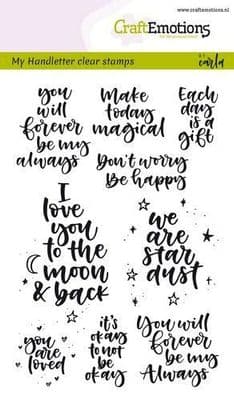 www.craftemotions.nl
CraftEmotions
My Handletter clear stamps
by carla
you
will
forever
be my
always
Make
today
magical
Each
day
is a
gift
Don't worry
Be happy
I
love
you
to the
moon
& back
we
are
star
dust
you
are
loved
it's
okay
to not
be
okay
You will
forever
be my
Always